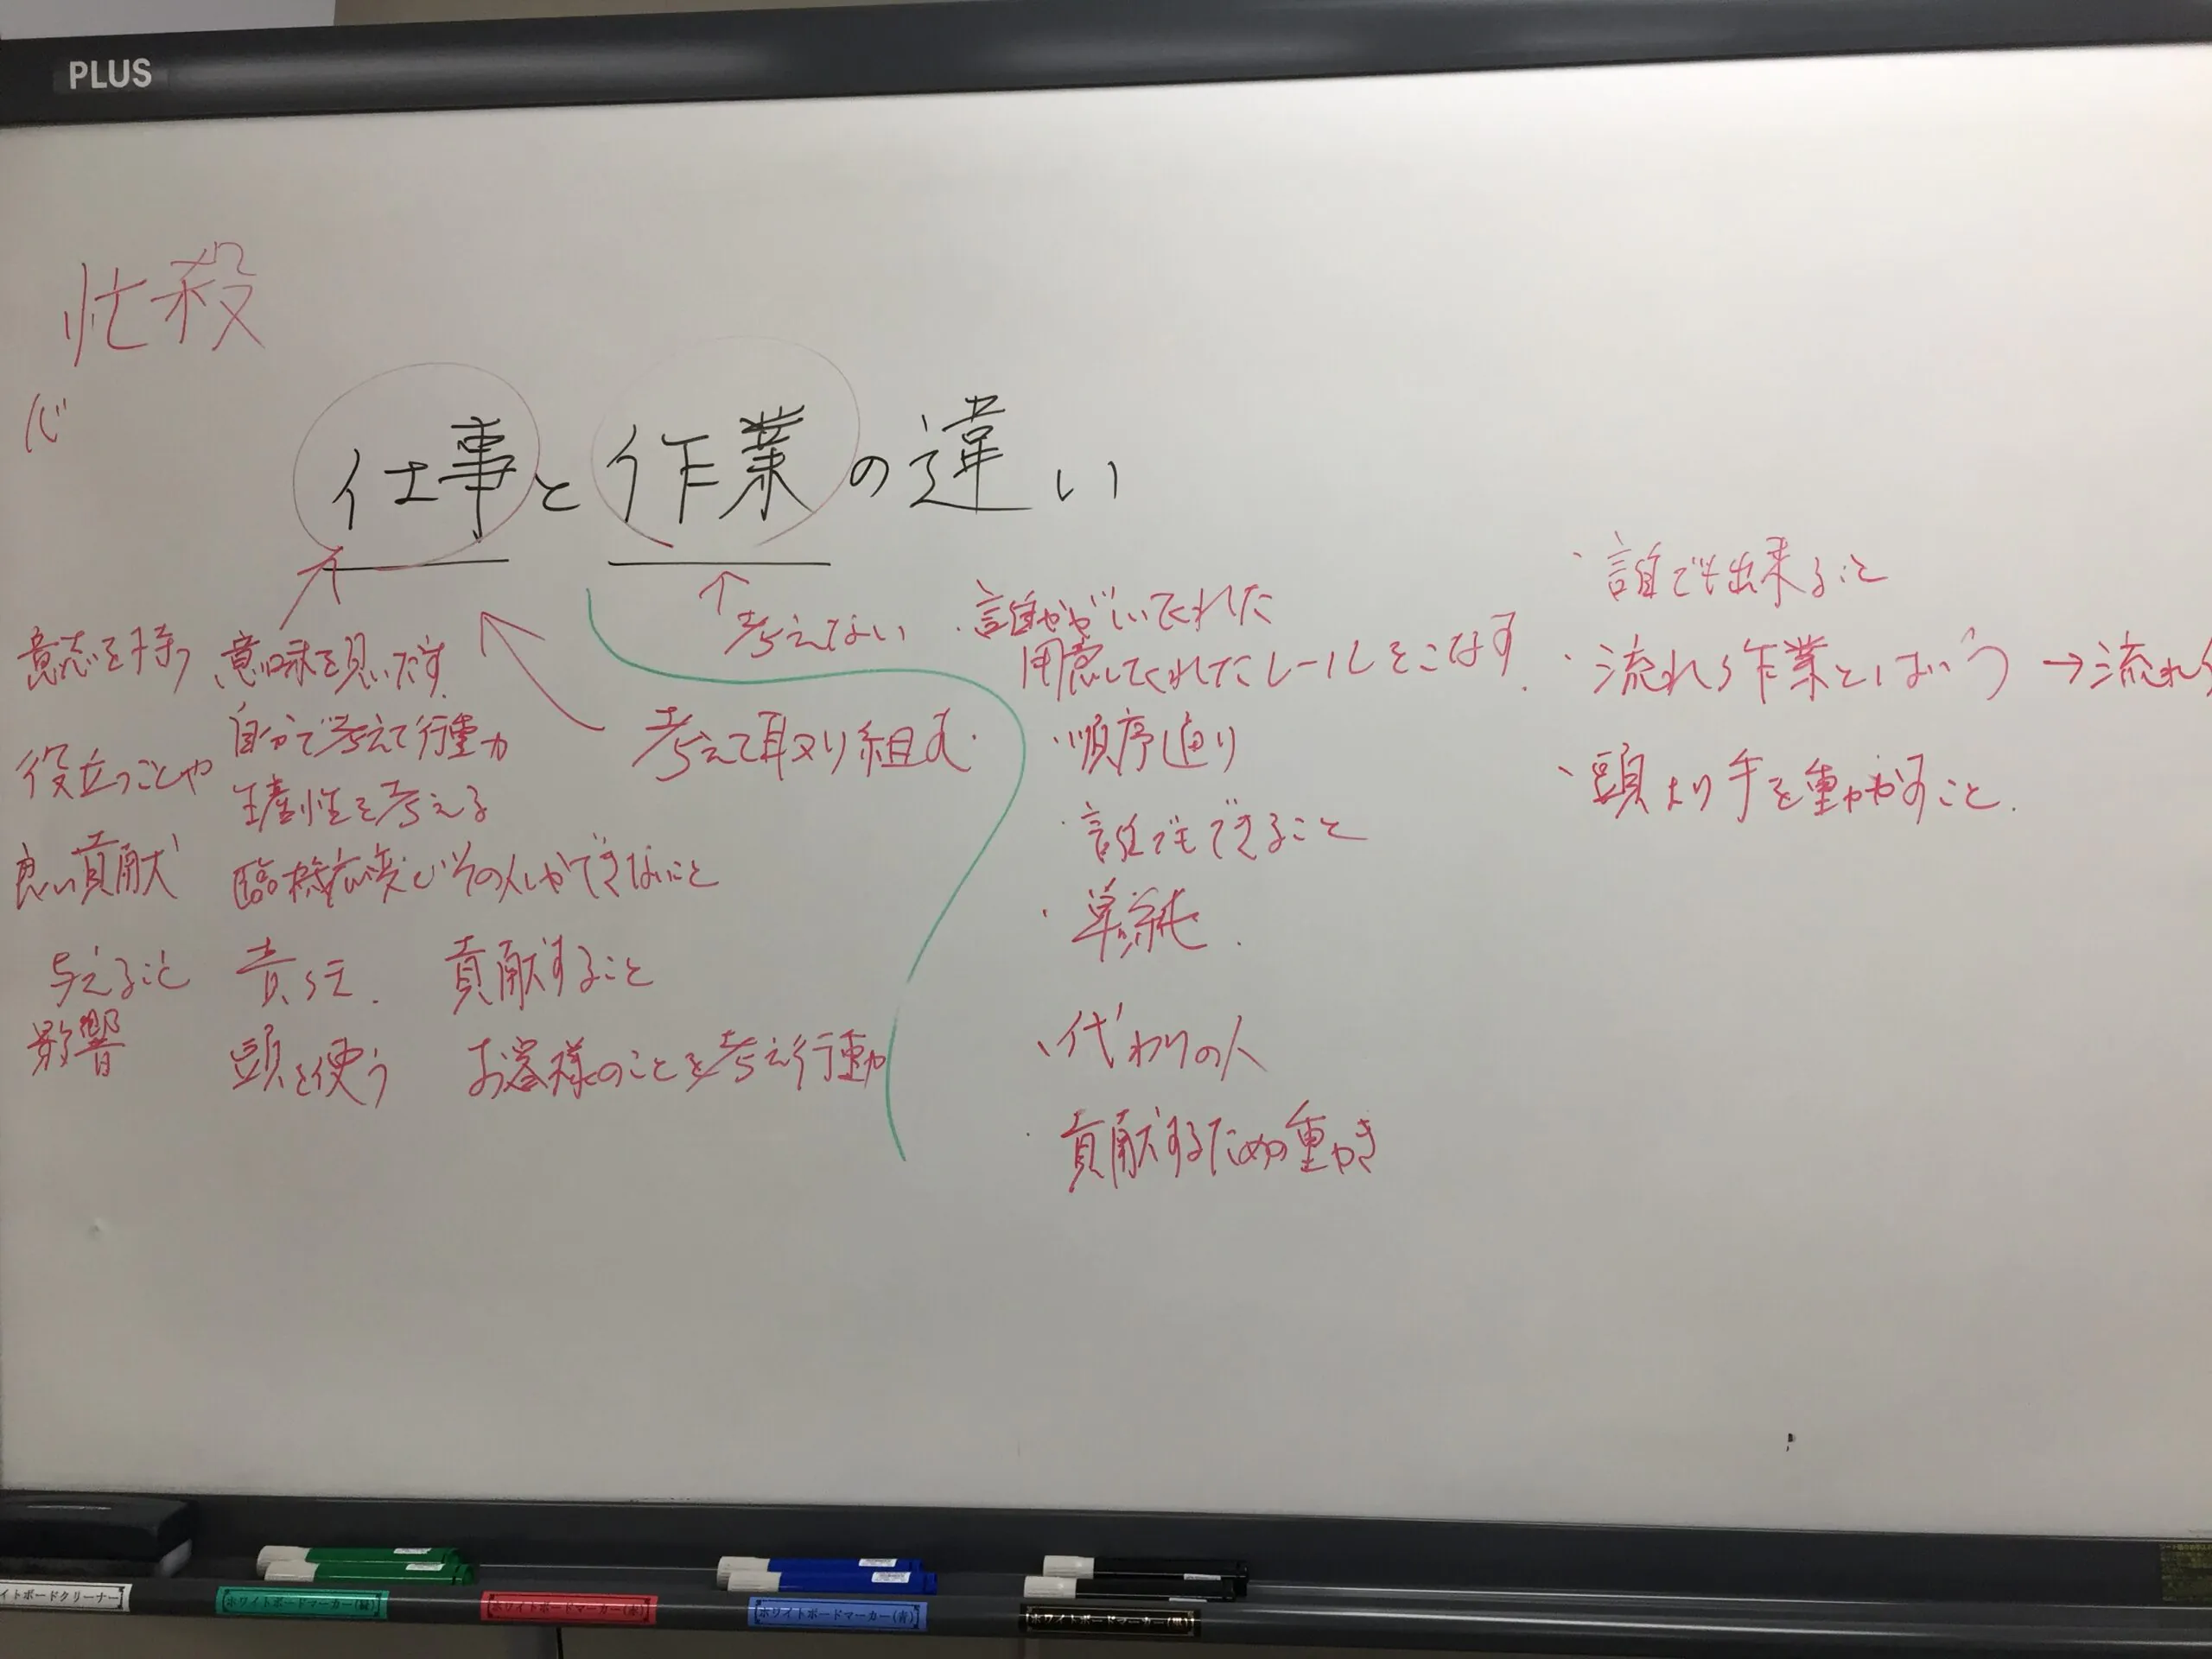 PLUS
忙殺
仕事と作業の違い
意志を持つ
役立つことや
良い貢献
与えること
影響
意味を見いだす
自分で考えて行動
生産性を考える
臨機応変 その人しかできないこと
責 貢献すること
頭を使う お客様のことを考え行動
考えて取り組む
考えてない
・誰かがしいてくれた
用意してくれたレールをこなす
・順序通り
・誰でもできること
・単純
・代わりの人
・貢献するための動き
・誰でも出来ること
・流れる作業とはいう→流れ
・頭より手を動かすこと
イトボードクリーナー
ホワイトボードマーカー(緑)
ホワイトボードマーカー(赤)
ホワイトボードマーカー(青)
ホワイトボードマーカー(黒)